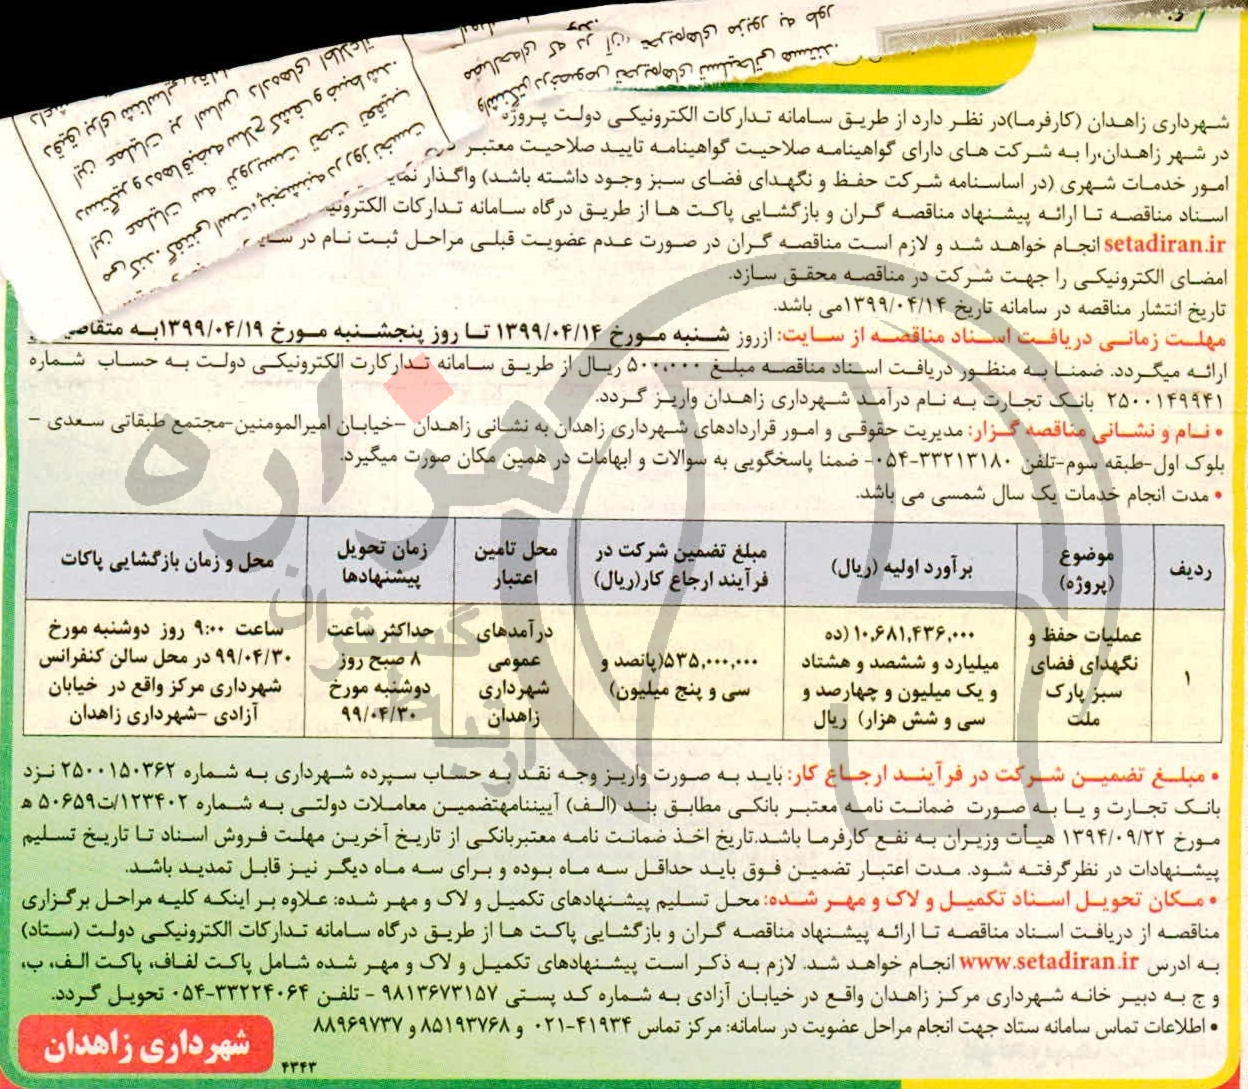 شهرداری زاهدان (کارفرما)در نظر دارد از طریق سامانه تدارکات الکترونیکی دولت پروژه
در شهر زاهدان،را به شرکت های دارای گواهینامه صلاحیت گواهینامه تایید صلاحیت معتبر
امور خدمات شهری (در اساسنامه شرکت حفظ و نگهدای فضای سبز وجود داشته باشد) واگذار
اسناد مناقصه تا ارائه پیشنهاد مناقصه گران و بازگشایی پاکت ها از طریق درگاه سامانه تدارکات
setadiran.ir انجام خواهد شد و لازم است مناقصه گران در صورت عدم عضویت قبلی مراحل ثبت نام در
امضای الکترونیکی را جهت شرکت در مناقصه محقق سازد.
تاریخ انتشار مناقصه در سامانه تاریخ ۱۳۹۹/۰۴/۱۴می باشد.
مهلت زمانی دریافت اسناد مناقصه از سایت: ازروز شنبه مورخ ۱۳۹۹/۰۴/۱۴ تا روز پنجشنبه مورخ ۱۳۹۹/۰۴/۱۹به
ارائه میگردد. ضمنا به منظور دریافت اسناد مناقصه مبلغ ۵۰۰،۰۰۰ ریال از طریق سامانه تدارکارت الکترونیکی دولت به حساب شماره
۲۵۰۰۱۴۹۹۴۱ بانک تجارت به نام درآمد شهرداری زاهدان واریز گردد.
• نام و نشانی مناقصه گزار: مدیریت حقوقی و امور قراردادهای شهرداری زاهدان به نشانی زاهدان –خیابان امیرالمومنین-مجتمع طبقاتی سعدی –
بلوک اول-طبقه سوم-تلفن ۳۳۲۱۳۱۸۰-۰۵۴- ضمنا پاسخگویی به سوالات و ابهامات در همین مکان صورت میگیرد.
• مدت انجام خدمات یک سال شمسی می باشد.
ردیف
موضوع
(پروژه)
برآورد اولیه (ریال)
مبلغ تضمین شرکت در
فرآیند ارجاع کار(ریال)
محل تامین
اعتبار
زمان تحویل
پیشنهادها
محل و زمان بازگشایی پاکات
۱
عملیات حفظ و
نگهدای فضای
سبز پارک
ملت
۱۰,۶۸۱,۴۳۶,۰۰۰ (ده
میلیارد و ششصد و هشتاد
و یک میلیون و چهارصد و
سی و شش هزار) ریال
۵۳۵,۰۰۰,۰۰۰(پانصد و
سی و پنج میلیون)
درآمدهای
عمومی
شهرداری
زاهدان
حداکثر ساعت
۸ صبح روز
دوشنبه مورخ
۹۹/۰۴/۳۰
ساعت ۹:۰۰ روز دوشنبه مورخ
۹۹/۰۴/۳۰ در محل سالن کنفرانس
شهرداری مرکز واقع در خیابان
آزادی –شهرداری زاهدان
• مبلغ تضمین شرکت در فرآیند ارجاع کار: باید به صورت واریز وجه نقد به حساب سپرده شهرداری به شماره ۲۵۰۰۱۵۰۳۶۲ نزد
بانک تجارت و یا به صورت ضمانت نامه معتبر بانکی مطابق بند (الف) آییننامهتضمین معاملات دولتی به شماره ۱۲۳۴۰۲/ت۵۰۶۵۹ ه
مورخ ۱۳۹۴/۰۹/۲۲ هیأت وزیران به نفع کارفرما باشد.تاریخ اخذ ضمانت نامه معتبربانکی از تاریخ آخرین مهلت فروش اسناد تا تاریخ تسلیم
پیشنهادات در نظرگرفته شود. مدت اعتبار تضمین فوق باید حداقل سه ماه بوده و برای سه ماه دیگر نیز قابل تمدید باشد.
• مکان تحویل اسناد تکمیل و لاک و مهر شده: محل تسلیم پیشنهادهای تکمیل و لاک و مهر شده: علاوه بر اینکه کلیه مراحل برگزاری
مناقصه از دریافت اسناد مناقصه تا ارائه پیشنهاد مناقصه گران و بازگشایی پاکت ها از طریق درگاه سامانه تدارکات الکترونیکی دولت (ستاد)
به ادرس www.setadiran.ir انجام خواهد شد. لازم به ذکر است پیشنهادهای تکمیل و لاک و مهر شده شامل پاکت لفاف، پاکت الف، ب،
و ج به دبیر خانه شهرداری مرکز زاهدان واقع در خیابان آزادی به شماره کد پستی ۹۸۱۳۶۷۳۱۵۷ - تلفن ۳۳۲۲۴۰۶۴-۰۵۴ تحویل گردد.
• اطلاعات تماس سامانه ستاد جهت انجام مراحل عضویت در سامانه: مرکز تماس ۴۱۹۳۴-۰۲۱ و ۸۵۱۹۳۷۶۸ و ۸۸۹۶۹۷۳۷
شهرداری زاهدان
۴۳۴۳
هزاره